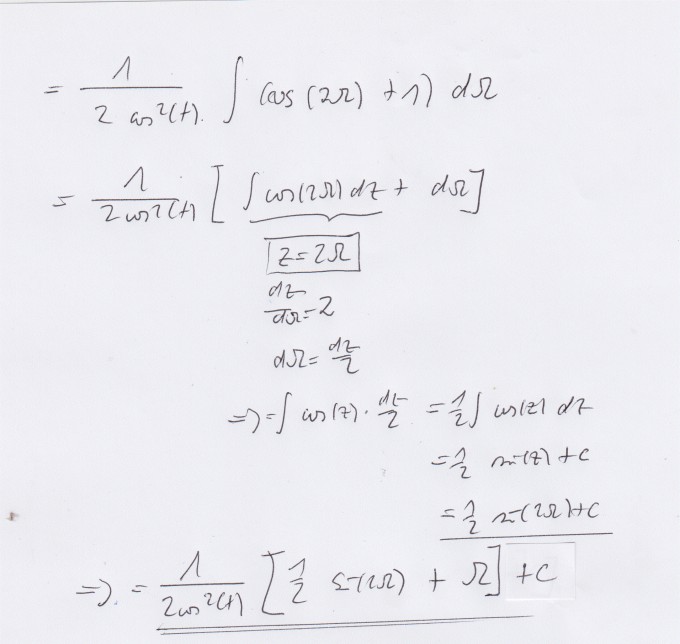 = 1/(2 cos²(t)) · ∫ cos(2Ω) + 1) dΩ
= 1/(2 cos²(t)) [ ∫ cos(2Ω) dz + dΩ ]
z = 2Ω
dz/dΩ = 2
dΩ = dz/2
=> = ∫ cos(z) · dz/2 = 1/2 ∫ cos(z) dz
= 1/2 sin(z) + c
= 1/2 sin(2Ω) + c
=> . = 1/(2 cos²(t)) [ 1/2 sin(2Ω) + Ω ] + c